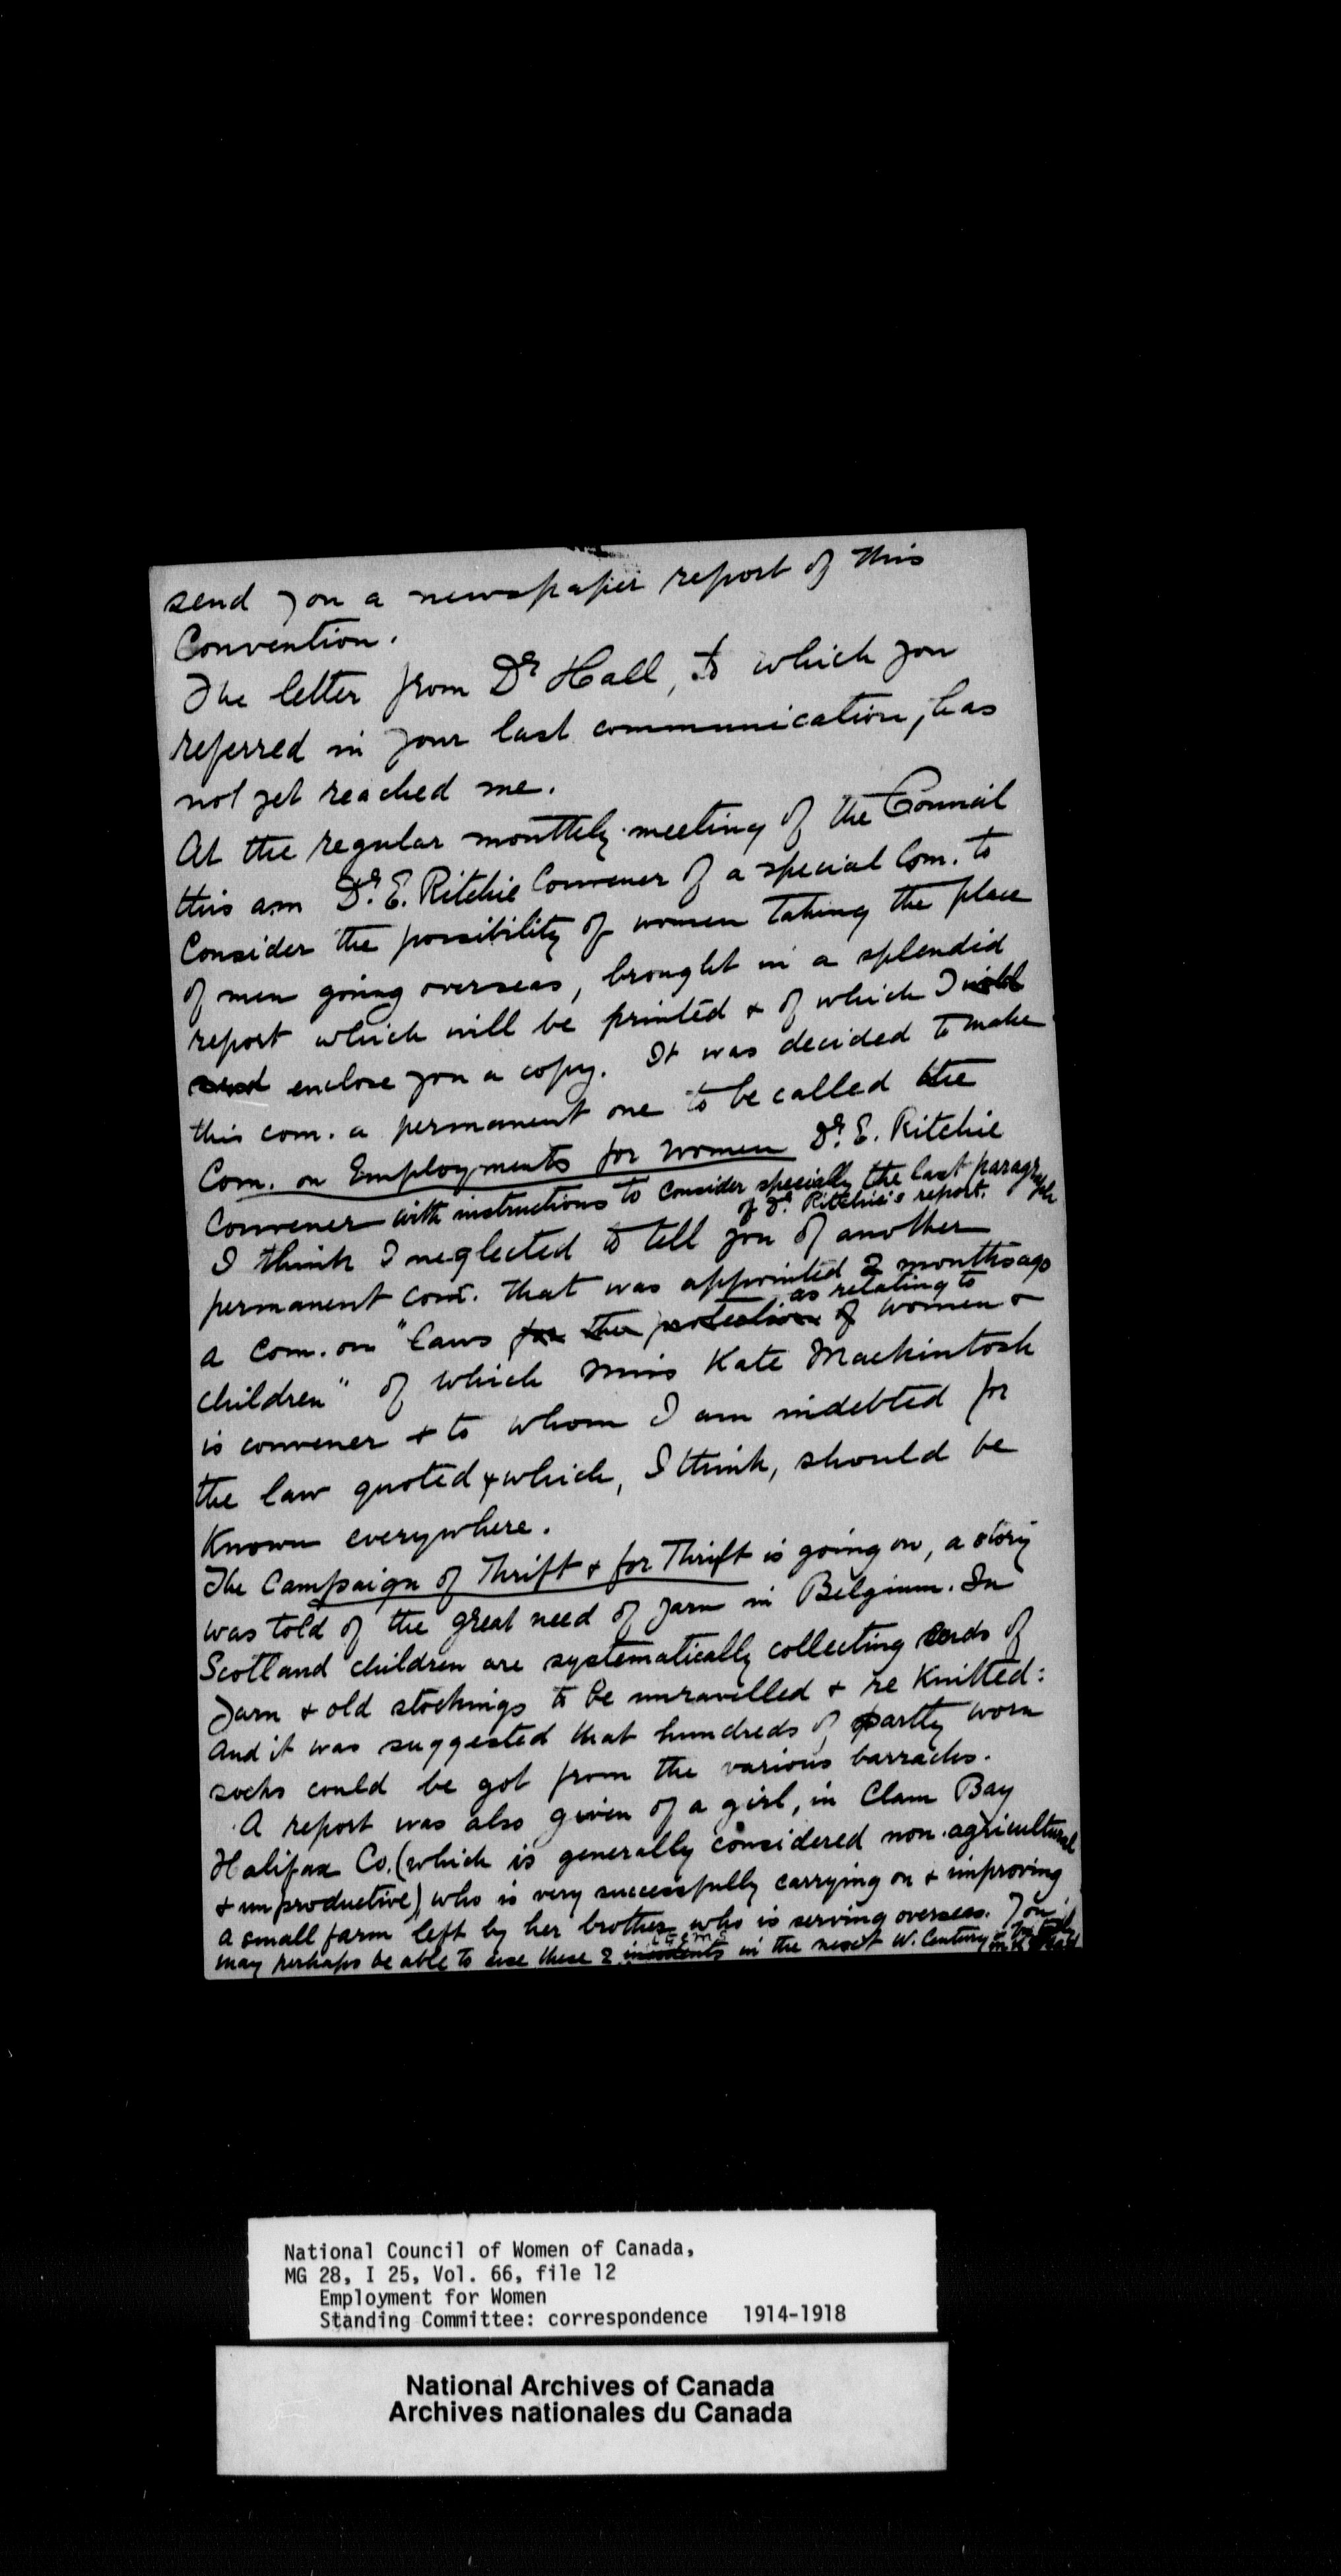 send you a newspaper report of this
Convention.
The letter from Dr Hall, to which you
referred in your last communication, has
not yet reached me.
At the regular monthly meeting of the Council
this a.m Dr. E. Ritchie Convener of a special Com. to
Consider the possibility of women taking the place
of men going overseas, brought in a splendid
report which will be printed & of which I will
send enclose you a copy. It was decided to make
this com. a permanent one to be called the
Com. on Employments for Women Dr. E. Ritchie
Convener with instructions to consider specially the last paragraph
of Dr Ritchie's report.
I think I neglected to tell you of another
permanent com. that was appointed 2 months ago
a com. on "laws for the protection of as relating to women &
children" of which Miss Kate Mackintosh
is convener & to whom I am indebted for
the law quoted & which, I think, should be
known everywhere.
The Campaign of Thrift & for Thrift is going on, a story
was told of the great need of yarn in Belgium. In
Scotland children are systematically collecting ends of
yarn & old stockings to be unravelled & re knitted:
And it was suggested that hundreds of partly worn
socks could be got from the various barracks.
A report was also given of a girl, in Clam Bay
Halifax Co. (which is generally considered non-agricultural
& unproductive) who is very successfully carrying on & improving
a small farm left by her brother who is serving overseas. You
may perhaps be able to use these 2 incidents items in the next W. Century
National Council of Women of Canada,
MG 28, I 25, Vol. 66, file 12
Employment for Women
Standing Committee: correspondence 1914-1918
National Archives of Canada
Archives nationales du Canada